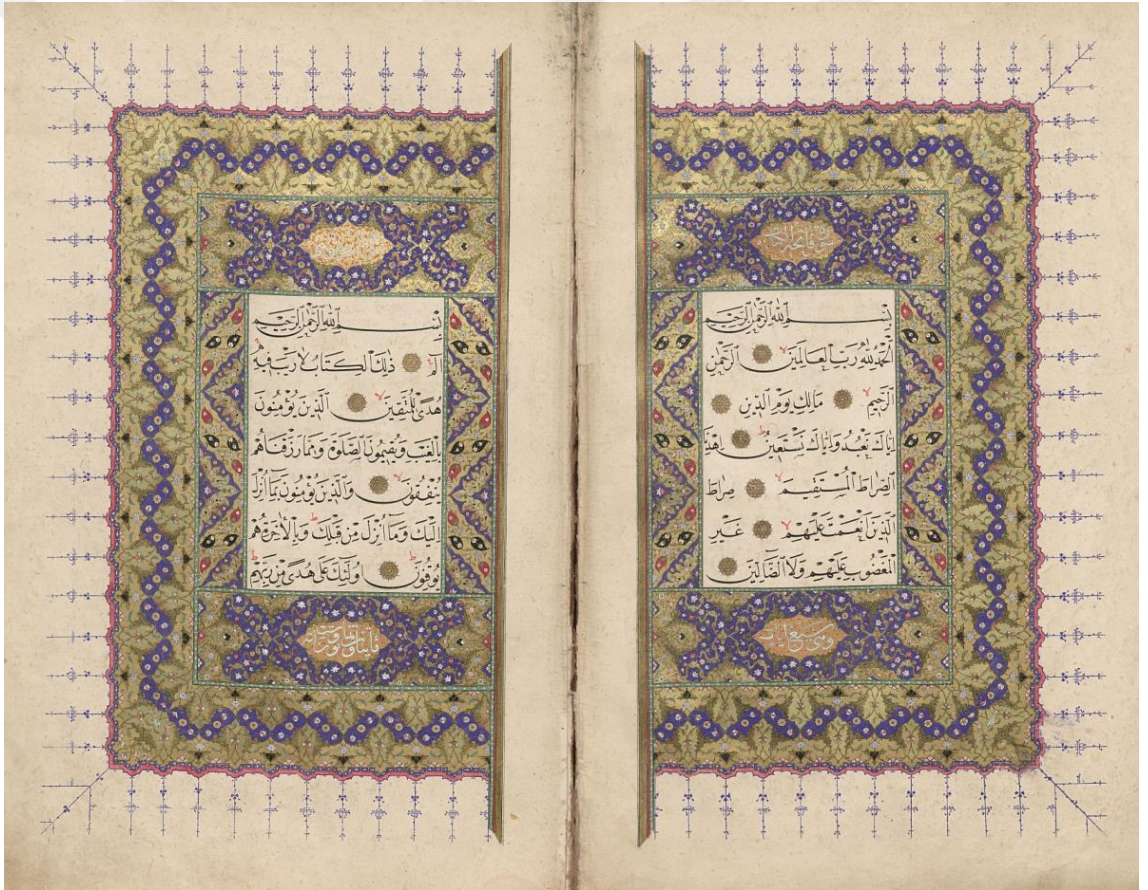 سورة فاتحة الكتاب
بسم الله الرحمن الرحيم
الحمد لله رب العالمين الرحمن
الرحيم مالك يوم الدين
اياك نعبد واياك نستعين اهدنا
الصراط المستقيم صراط
الذين انعمت عليهم غير
المغضوب عليهم ولا الضالين
وهي سبع ايات
بسم الله الرحمن الرحيم
الم ذلك الكتاب لا ريب فيه
هدى للمتقين الذين يؤمنون
بالغيب ويقيمون الصلوة ومما رزقناهم
ينفقون والذين يؤمنون بما انزل
اليك وما انزل من قبلك وبالاخرة هم
يوقنون اولئك على هدى من ربهم